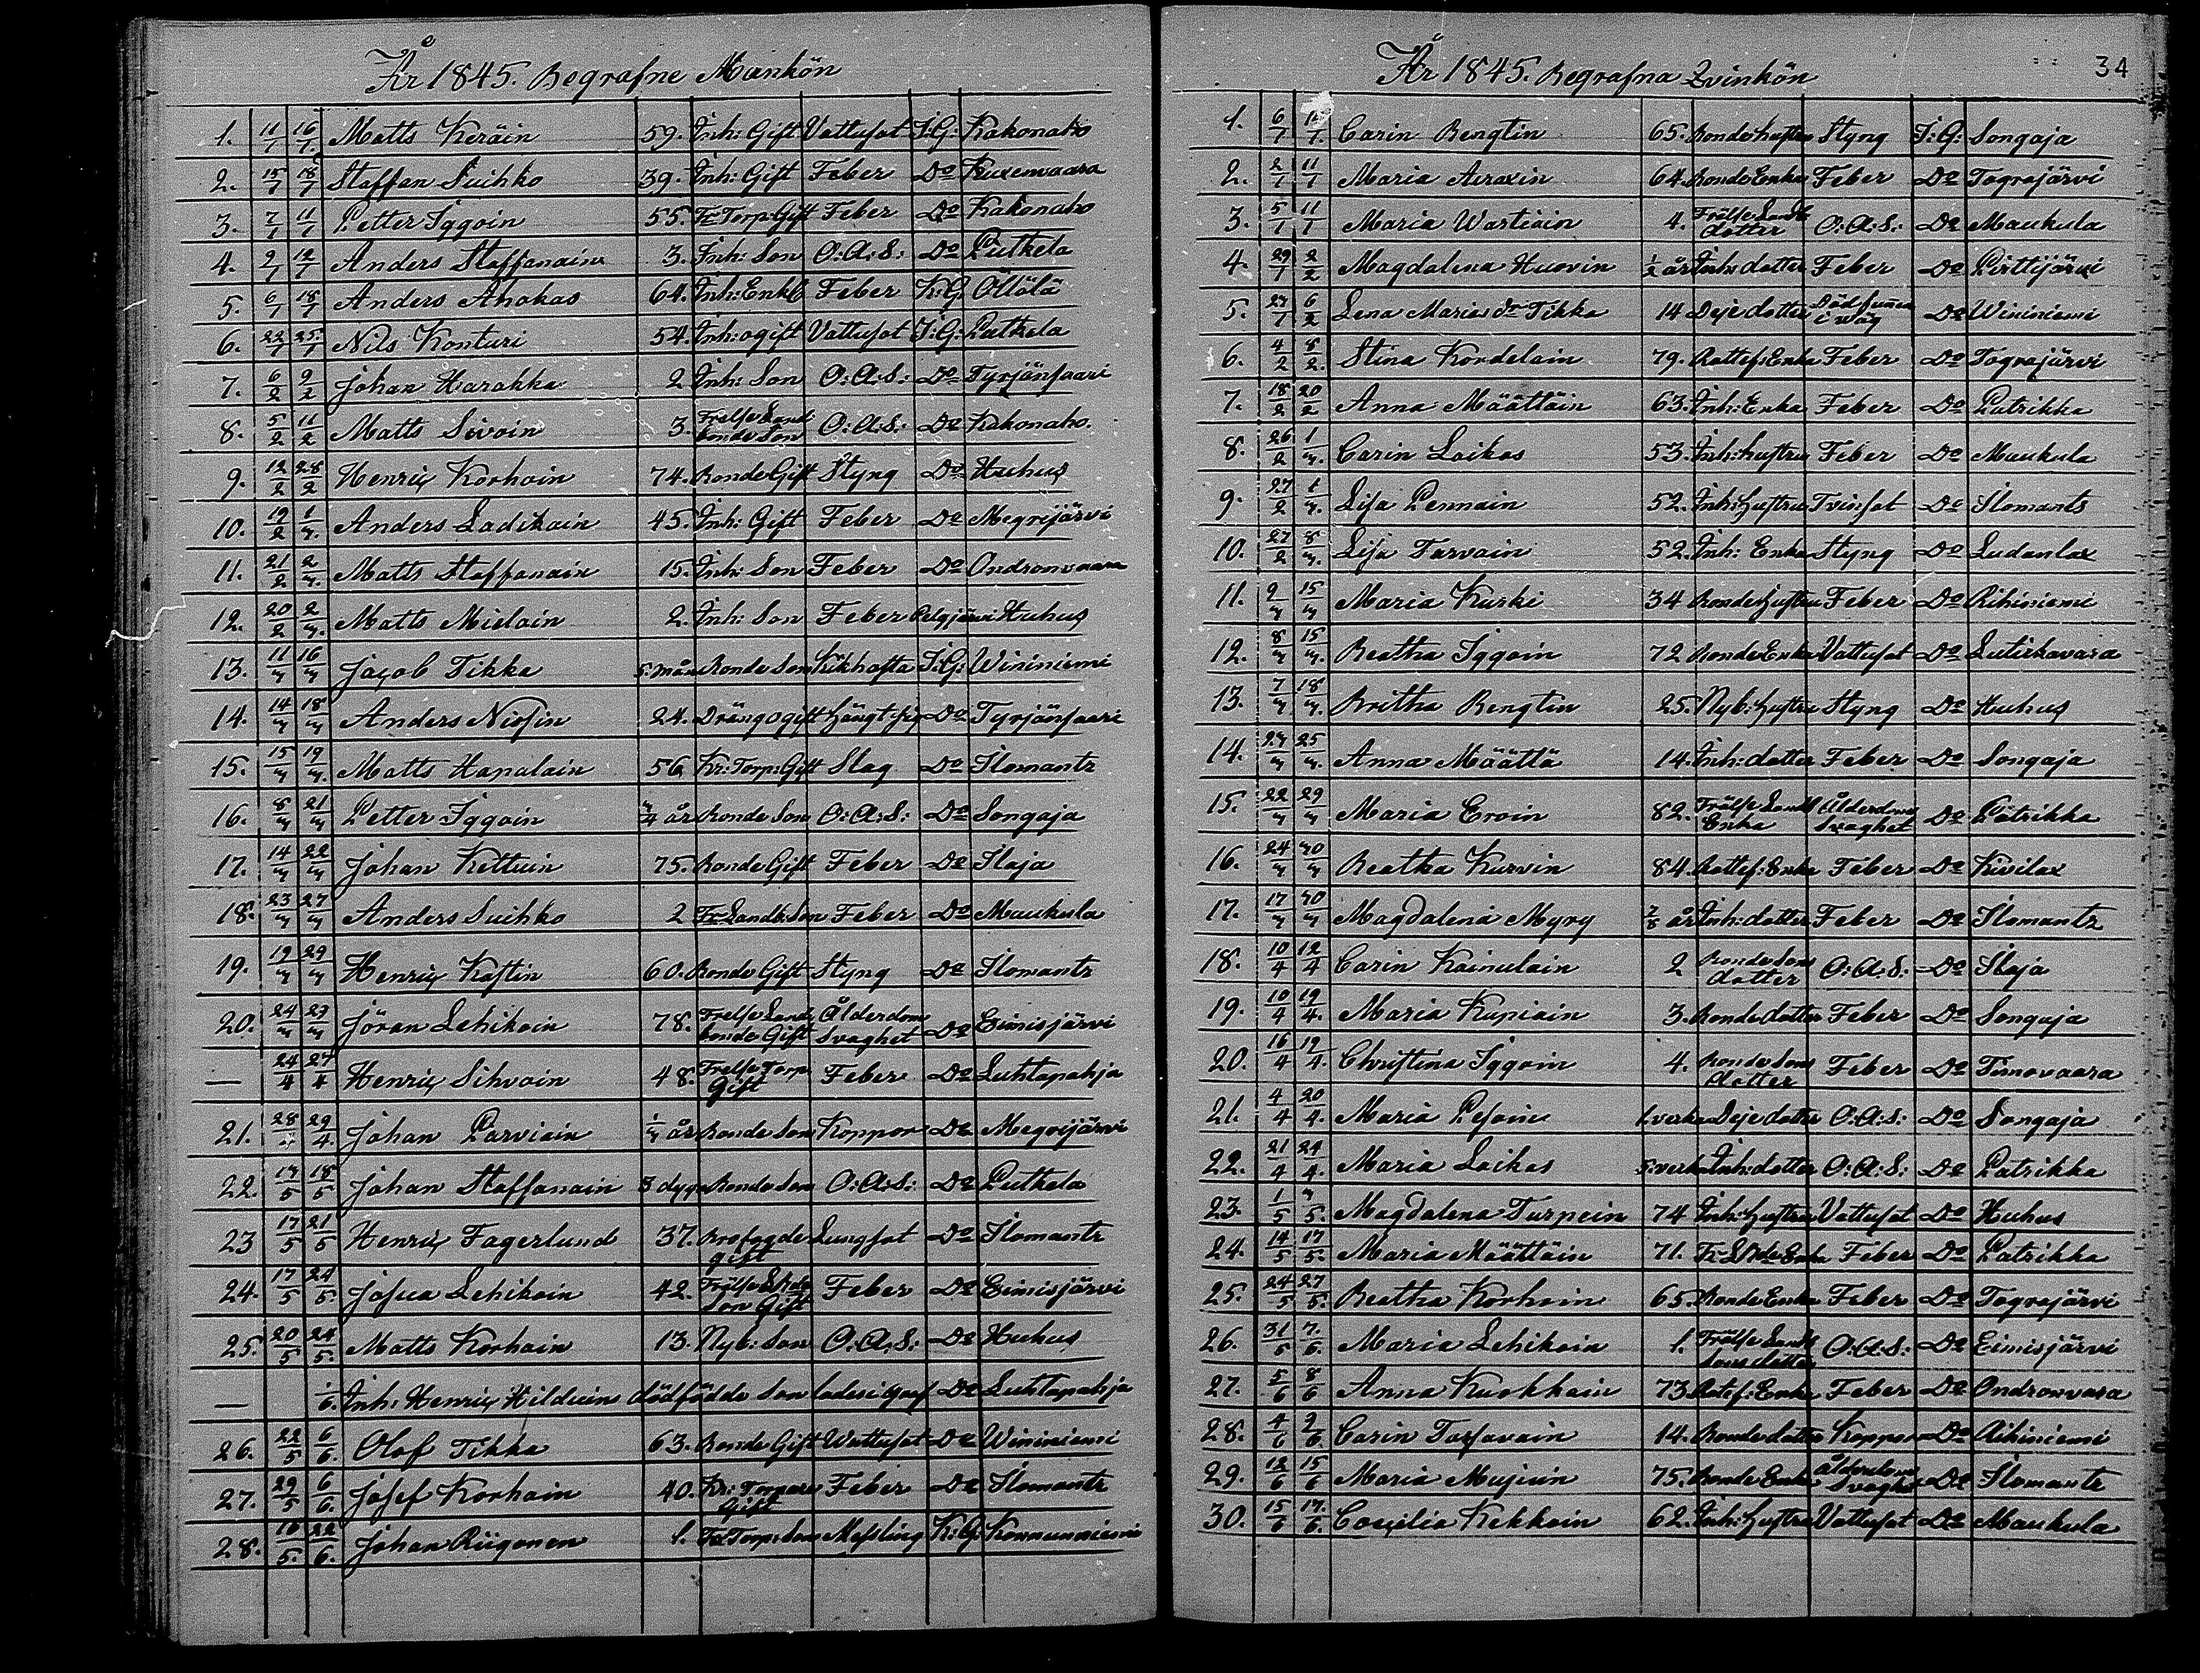 År 1845. Begrafne Mankön
1. 11/1 16/1. Matts Keräin 59. Inh: Gift Vattusot I:G: Kakonaho
2. 15/1 18/1 Staffan Suihko 39. Inh: Gift Feber Do Kuxenvaara
3. 7/1 11/1 Petter Iggoin 55. Fr Torp: Gift Feber Do Kakonaho
4. 9/1 12/1 Anders Staffanain 3. Inh: Son O:A:S: Do Putkela
5. 6/1 18/1 Anders Ahokas 64. Inh: Enkl Feber K:G: Öllölä
6. 22/1 25/1 Nils Konturi 54. Inh: ogift Vattusot I:G: Putkela
7. 6/2 9/2 Johan Harakka 2 Inh: Son O:A:S: Do Tyrjänsaari
8. 5/2 11/2 Matts Sivoin 3. Frelse Land bonde Son O:A:S: Do Kakonaho.
9. 12/2 28/2 Henric Korhoin 74. Bonde Gift Styng Do Huhus
10. 19/2 1/3. Anders Ladikain 45. Inh: Gift Feber Do Megrijärvi
11. 21/2 2/3. Matts Staffanain 15. Inh: Son Feber Do Ondronvaara
12. 20/2 2/3. Matts Mielain 2. Inh: Son Feber Pelgjärvi Huhus
13. 11/3 16/3 Jacob Tikka 5. mån Bonde Son Kikhosta I:G: Wininiemi
14. 14/3 18/3 Anders Niosin 24. Dräng ogift hängt sig Do Tyrjänsaari
15. 15/3 19/3. Matts Hapalain 56 Kr: Torp: Gift Slag Do Ilomants
16. 8/3 21/3 Petter Iggoin 3/4 år Bonde Son O:A:S: Do Songaja
17. 14/3 22/3 Johan Kettuin 75. Bonde Gift Feber Do Ilaja
18. 23/3 27/3 Anders Suihko 2 Fr Landb: Son Feber Do Maukula
19. 19/3 29/3 Henric Kastin 60. Bonde Gift Styng Do Ilomants
20. 24/3 29/3 Jöran Lehikoin 78. Frelse Land bonde Gift Ålderdoms Svaghet Do Eimisjärvi
— 24/4 27/4 Henric Sihvoin 48. Frelse Torp Gift Feber Do Luhtapohja
21. 28/3 29/4. Johan Parviain 1/3 år Bonde Son Koppor Do Megrijärvi
22. 13/5 18/5 Johan Staffanain 3 dygn Bonde Son O:A:S: Do Putkela
23 17/5 21/5 Henric Fagerlund 37. Brofogde gift Lungsot Do Ilomants
24. 17/5 24/5. Josua Lehikoin 42. Frälse Lbde Son Gift Feber Do Eimisjärvi
25. 20/5 24/5. Matts Korhoin 13. Nyb: Son O:A:S: Do Huhus
— 1/6. Inh: Henric Hilduin dödfödde Son lades i graf Do Luhtapohja
26. 22/5 6/6. Olof Tikka 63. Bonde Gift Wattusot Do Wininiemi
27. 29/5 6/6. Josef Korhoin 40. Kr: Torpare Gift Feber Do Ilomants
28. 18/5. 22/6. Johan Riigonen 1. Fr Torp: Son Messling K:G: Konnunniemi
34
År 1845. Begrafna Qvinkön
1. 6/1 11/1. Carin Bengtin 65. Bonde hustru Styng I:G: Songaja
2. 2/1 11/1 Maria Auraxin 64. Bonde Enka Feber Do Tograjärvi
3. 5/1 11/1 Maria Wartiain 4. Frälse Landb dotter O:A:S: Do Maukula
4. 29/1 2/2 Magdalena Huovin 1/2 år Inh: dotter Feber Do Pirttijärvi
5. 23/1 6/2 Lena Maria dr Tikka 14 Deje dotter Död funnen i väg Do Wininiemi
6. 4/2 8/2. Stina Kordelain 79. Rattef: Enka Feber Do Tograjärvi
7. 18/2 20/2 Anna Määttäin 63. Inh: Enka Feber Do Patrikka
8. 26/2 1/3. Carin Laikas 53. Inh: hustru Feber Do Maukula
9. 27/2 1/3. Lisa Pennain 52. Inh: hustru Tvinsot Do Ilomants
10. 27/2 8/3. Lisa Tarvain 52. Inh: Enka Styng Do Ludanlax
11. 9/3 15/3 Maria Kurki 34 Bonde hustru Feber Do Rihiniemi
12. 8/3 15/3. Beatha Iggoin 72 Bonde Enka Vattusot Do Lutirkavara
13. 7/3 18/3. Britha Bengtin 25. Nyb: hustru Styng Do Huhus
14. 23/3 25/3. Anna Määttä 14. Inh: dotter Feber Do Songaja
15. 22/3 29/3 Maria Eroin 82. Frälse Landb Enka Ålderdoms Svaghet Do Patrikka
16. 24/3 30/3 Beatha Kurvin 84. Rattef: Enka Feber Do Kivilax
17. 17/3 30/3 Magdalena Myry 7/8 år Inh: dotter Feber Do Ilomants
18. 10/4 12/4 Carin Kainulain 2 Bonde Sons dotter O:A:S: Do Ilaja
19. 10/4 19/4. Maria Kupiain 3. Bonde dotter Feber Do Songaja
20. 16/4 19/4. Christina Iggoin 4. Bonde Sons dotter Feber Do Tirnovaara
21. 4/4 20/4. Maria Pesoin 1. vecka Deje dotter O:A:S: Do Songaja
22. 21/4 24/4. Maria Laikas 5: vecka Inh: dotter O:A:S: Do Patrikka
23. 1/5 3/5. Magdalena Turpein 74 Inh: hustru Vattusot Do Huhus
24. 14/5 17/5. Maria Määttäin 71. Fr Lbde Enka Feber Do Patrikka
25. 24/5 27/5. Beatha Korhoin 65 Bonde Enka Feber Do Tograjärvi
26. 31/5 7/6. Maria Lehikoin 1. Frälse Landb Sons dotter O:A:S: Do Eimisjärvi
27. 5/6 8/6 Anna Kuokkain 73 Ratef: Enka Feber Do Ondronvara
28. 4/6 9/6. Carin Tarvain 14. Bonde dotter Koppor Do Rihiniemi
29. 12/6 15/6 Maria Mujuin 75. Bonde Enka Ålderdoms Svaghet Do Ilomants
30. 15/6 17/6. Cecilia Kekkoin 62. Inh: hustru Vattusot Do Maukula